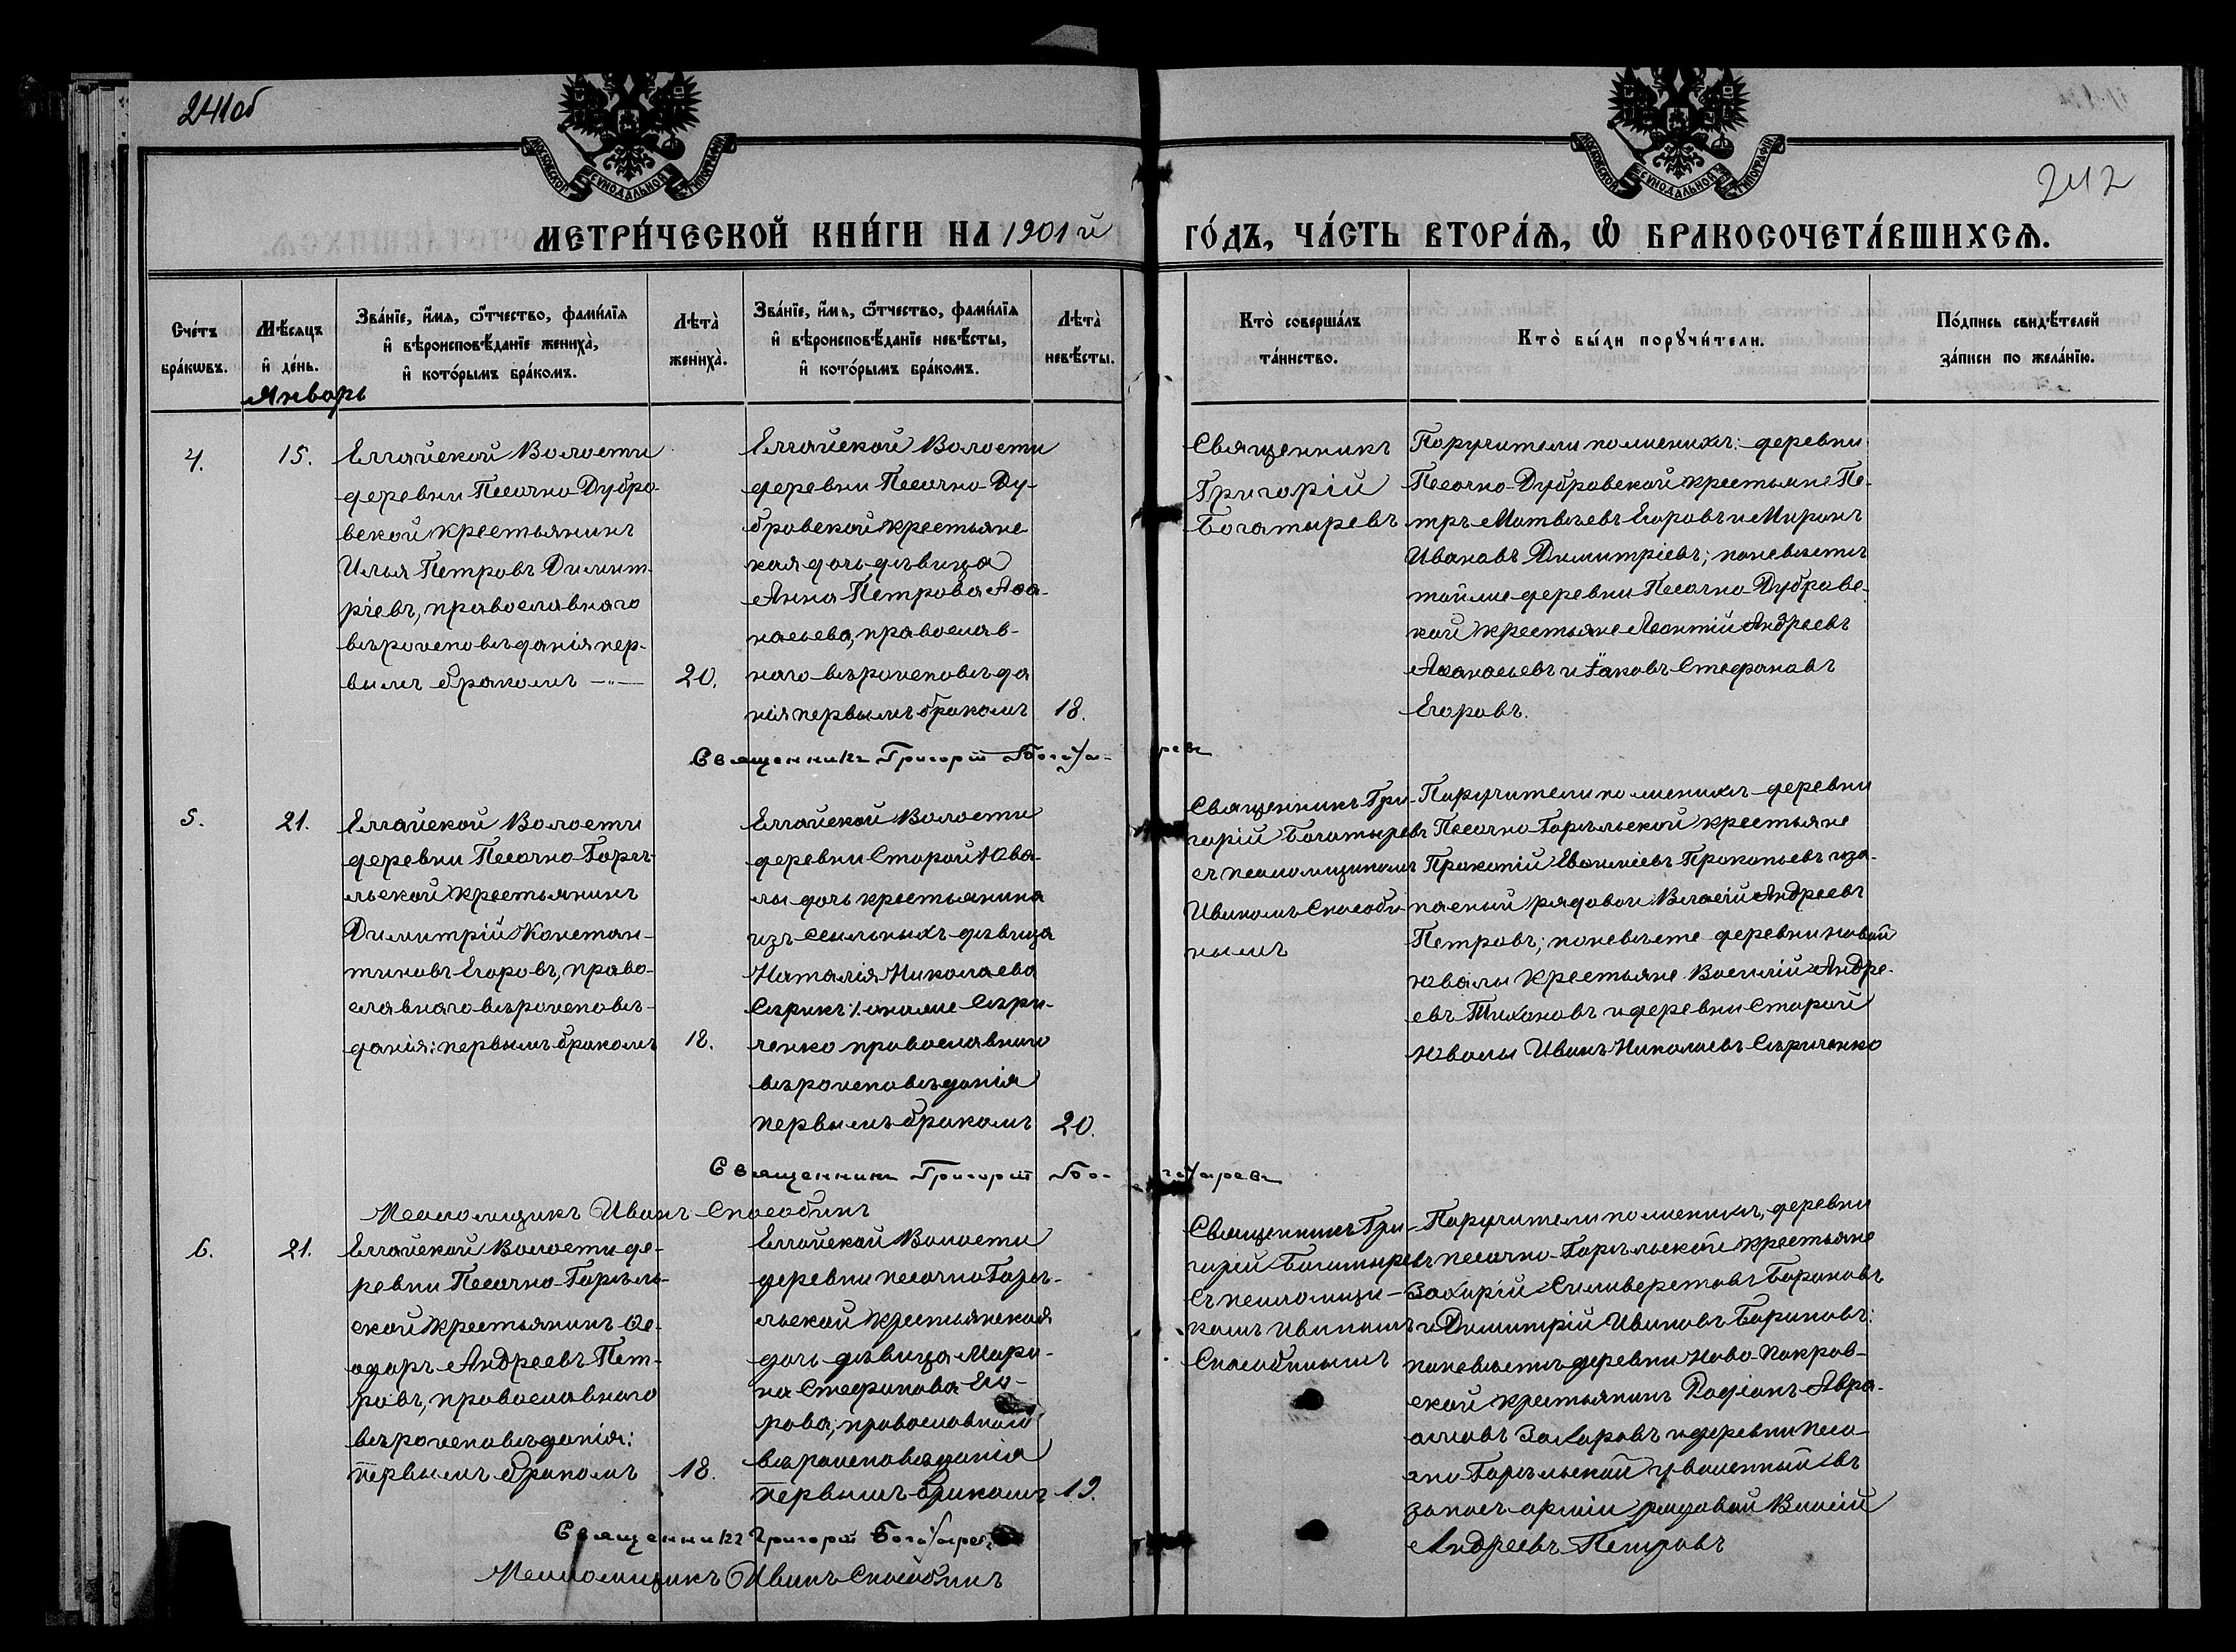 241об
МОСКОВСКОЙ СѴНОДАЛЬНОЙ ТИПОГРАФІИ
МОСКОВСКОЙ СѴНОДАЛЬНОЙ ТИПОГРАФІИ
242
МЕТРИ́ЧЕСКОЙ КНИ́ГИ НА 1901й ГО́ДЪ, ЧА́СТЬ ВТОРА́Ѧ, Ѽ БРАКОСОЧЕТА́ВШИХСѦ.
Сче́тъ
бра́кѡвъ.
Мѣ́сѧцъ
и҆ де́нь.
Январь
Зва́нїе, и҆́мѧ, ѻ҆́тчество, фамѝлїѧ
и҆ вѣроисповѣ́данїе жениха̀,
и҆ кото́рымъ бра́комъ.
Лѣта̀
жениха̀.
Зва́нїе, и҆́мѧ, ѻ҆́тчество, фамѝлїѧ
и҆ вѣроисповѣ́данїе невѣ́сты,
и҆ кото́рымъ бра́комъ.
Лѣта̀
невѣ́сты.
Кто̀ соверша́лъ
та́инство.
Кто̀ бы́ли порꙋчи́тели.
По́дпись свидѣ́телей
за́писи по жела́нїю.
4.
15.
Елгайской Волости
деревни Песочно-Дубро-
вской крестьянинъ
Илья Петровъ Димит-
ріевъ, православнаго
вѣроисповѣданія пер-
вымъ бракомъ —"—
20.
Елгайской Волости
деревни Песочно-Ду-
бровской крестьянс
кая дочь-дѣвица
Анна Петрова Аѳа-
насьева, православ-
наго вѣроисповѣда
нія первымъ бракомъ
18.
Священникъ
Григорій
Богатыревъ
Поручители по женихѣ: деревни
Песочно-Дубровской крестьяне Пе-
тръ Матвѣевъ Егоровъ и Миронъ
Ивановъ Димитріевъ; по невѣстѣ
той же деревни Песочно-Дубровс-
кой крестьяне Леонтій Андреевъ
Аѳанасьевъ и Іаковъ Стефановъ
Егоровъ.
Священникъ Григорій Богатыревъ
5.
21.
Елгайской Волости
деревни Песочно-Горѣ-
льской крестьянинъ
Димитрій Констан-
тиновъ Егоровъ, право-
славнаго вѣроисповѣ-
данія: первымъ бракомъ
18.
Елгайской Волости
деревни Старой Юва-
лы дочь крестьянина
изъ ссыльныхъ дѣвица
Наталія Николаева
Сѣрикъ онаже Сѣри-
ченко православнаго
вѣроисповѣданія
первымъ бракомъ
20.
Священникъ Гри-
горій Богатыревъ
съ псаломщикомъ
Иваномъ Способи-
нымъ
Поручители по женихѣ деревни
Песочно-Горѣльской крестьяне
Прокопій Евѳиміевъ Прокопьевъ и за-
пасный рядовой Власій Андреевъ
Петровъ; по невѣсте деревни новой
Ювалы крестьяне Василій Андре-
евъ Тихоновъ и деревни Старой
Ювалы Иванъ Николаевъ Сѣриченко
Священникъ Григорій Богатыревъ
Псаломщикъ Иванъ Способинъ
6.
21.
Елгайской Волости де-
ревни Песочно-Горѣль-
ской крестьянинъ Ѳе-
одоръ Андреевъ Пет-
ровъ, православнаго
вѣроисповѣданія:
первымъ бракомъ
18.
Елгайской Волости
деревни песочно Горѣ-
льской крестьянская
дочь дѣвица Мари-
на Стефанова Его-
рова, православнаго
вѣроисповѣданія
первымъ бракомъ
19.
Священникъ Гри-
горій Богатыревъ
съ псаломщи-
комъ Иваномъ
Способинымъ
Поручители по женихѣ, деревни
песочно-Горѣльской крестьяне
Захарій Силиверстовъ Барановъ
и Димитрій Ивановъ Барановъ:
по невѣстѣ деревни Ново-Покров-
ской крестьянинъ Родіонъ Авра-
амовъ Захаровъ и деревни песо-
чно Горѣльской уволенный въ
запасъ арміи рядовой Власій
Андреевъ Петровъ
Священникъ Григорій Богатыревъ
Псаломщикъ Иванъ Способинъ